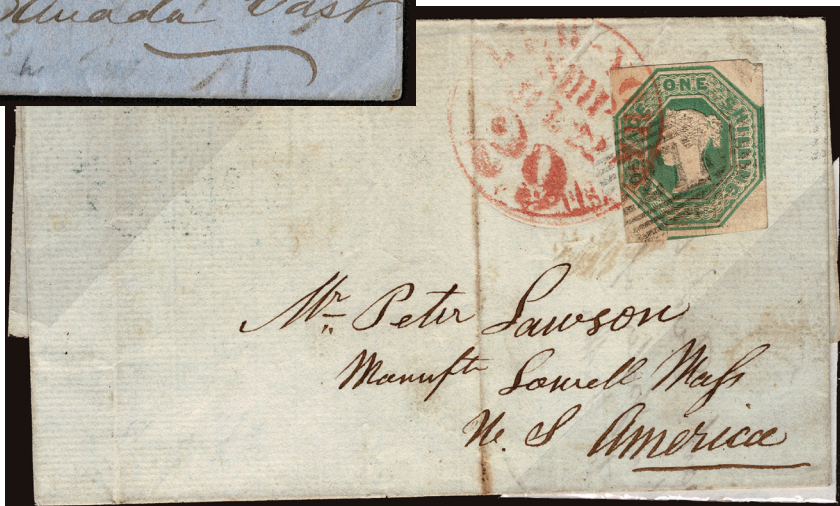 Canada West
ONE SHILLING
Mr. Peter Lawson
Manuftr Lowell Mass
U. S America